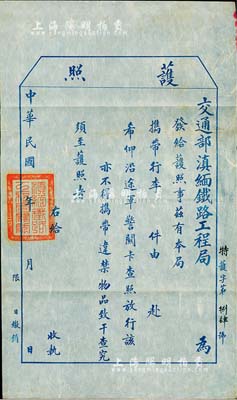 上海陽明拍賣
護照
交通部滇緬鐵路工程局 為
發給護照事茲有本局
攜帶行李 件由 赴
希仰沿途軍警關卡查照放行該
亦不得攜帶違禁物品致干查究
須至護照者
右給 收執
中華民國 年 月 日
限 日繳銷
特護字第 號